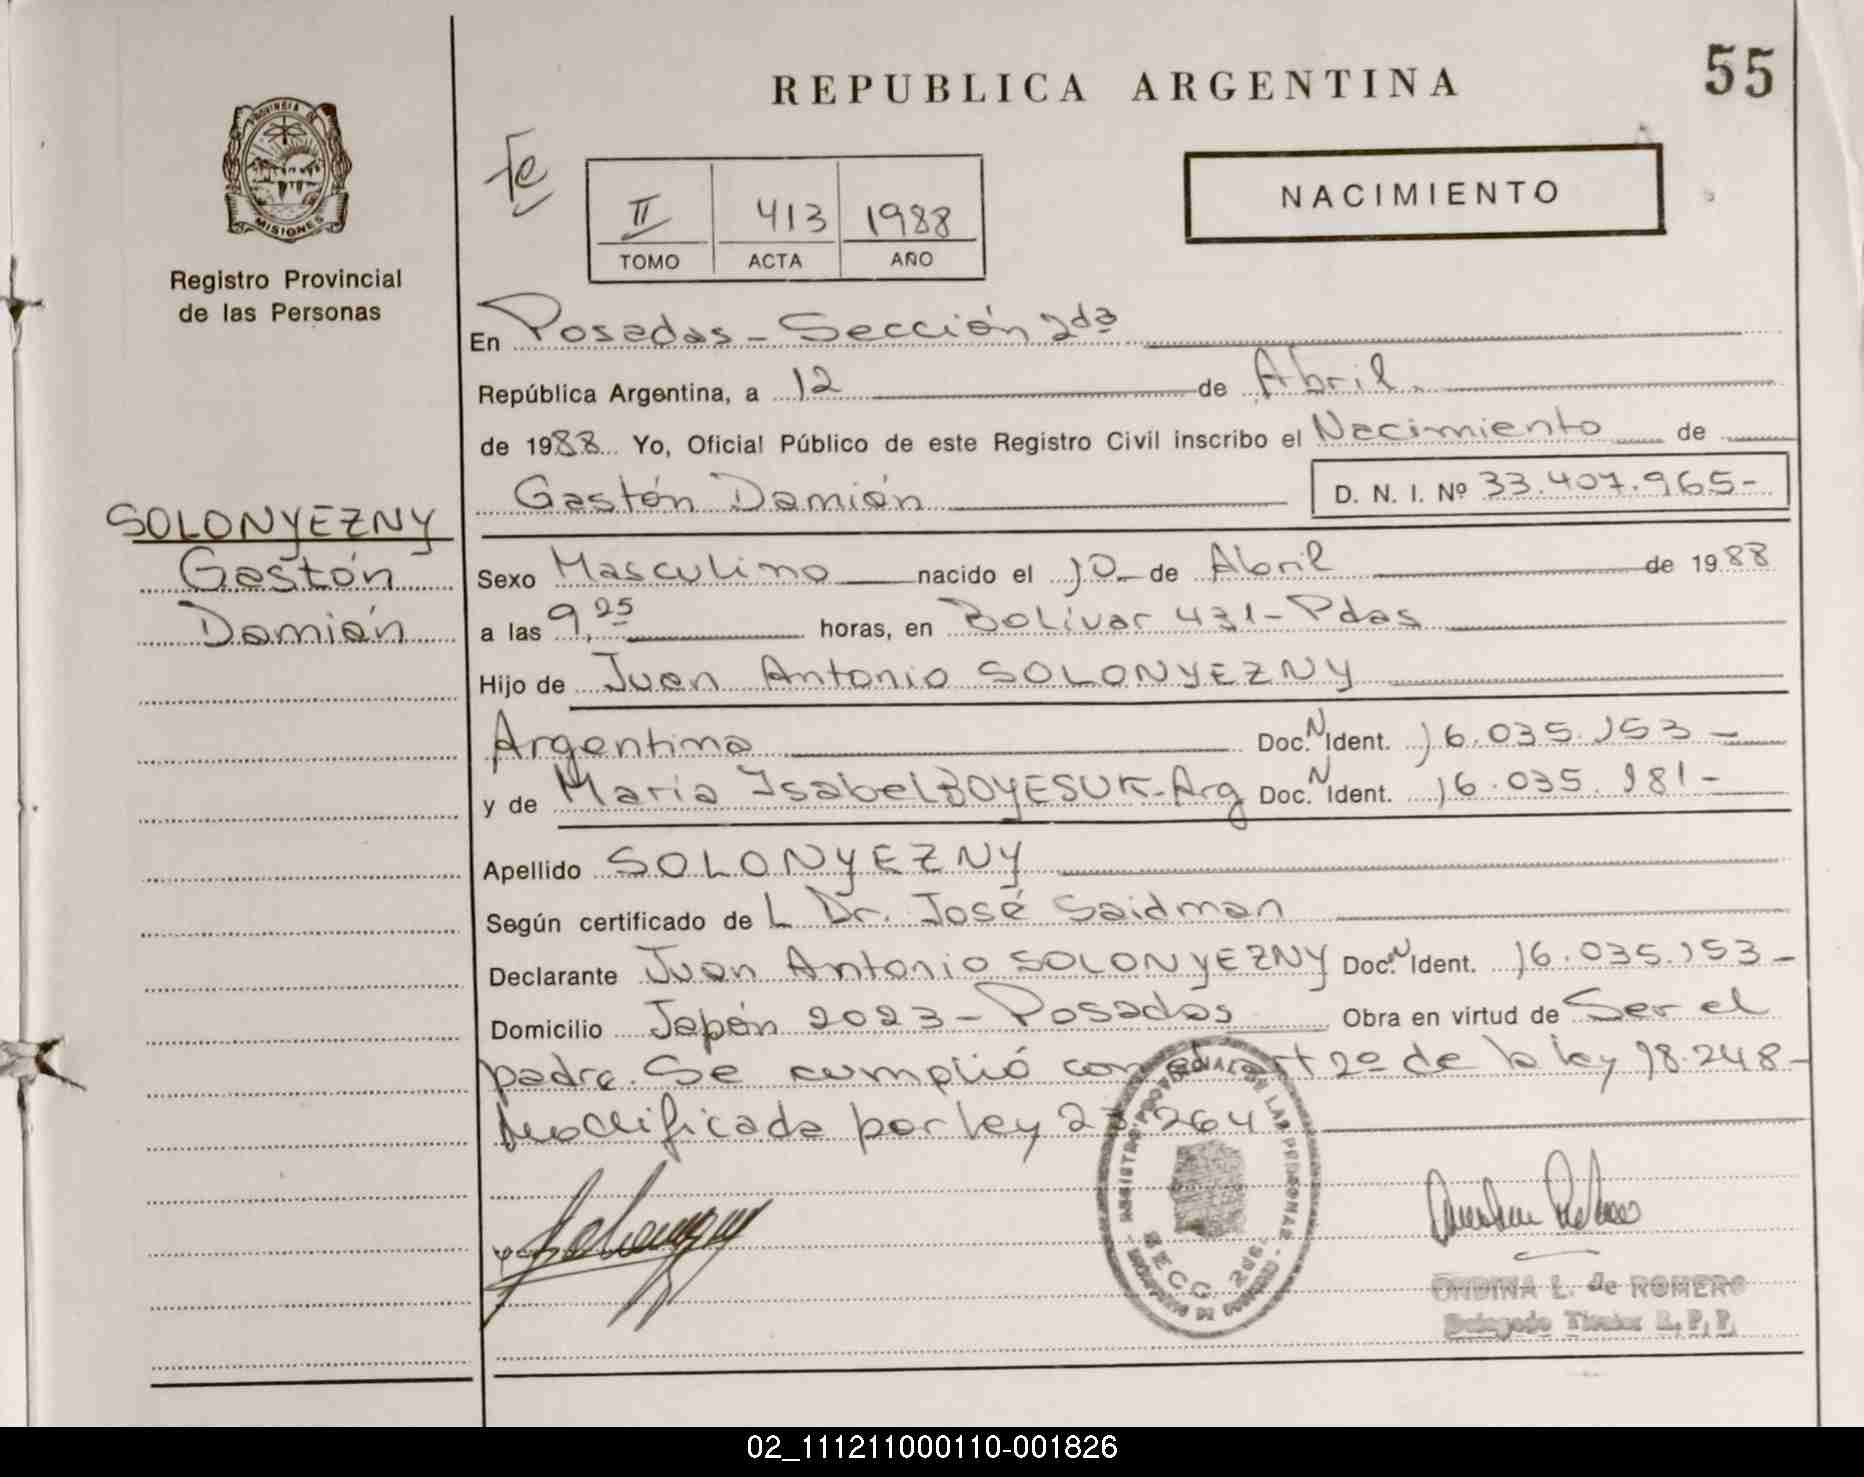 REPUBLICA ARGENTINA
55
PROVINCIA DE
MISIONES
Registro Provincial
de las Personas
Fe
II 413 1988
TOMO ACTA AÑO
NACIMIENTO
En Posadas - Sección 2da
República Argentina, a 12 de Abril
de 1988 Yo, Oficial Público de este Registro Civil inscribo el Nacimiento de
Gastón Damián D. N. I. Nº 33.407.965-
SOLONYEZNY
Gastón
Damián
Sexo Masculino nacido el 10 de Abril de 1988
a las 9,25 horas, en Bolívar 431 - Pdas
Hijo de Juan Antonio SOLONYEZNY
Argentina Doc. N Ident. 16.035.153-
y de María Isabel BOYESUK-Arg Doc. N Ident. 16.035.181-
Apellido SOLONYEZNY
Según certificado de L Dr. José Saidman
Declarante Juan Antonio SOLONYEZNY Doc. N Ident. 16.035.153-
Domicilio Japón 2023 - Posadas Obra en virtud de Ser el
padre. Se cumplió con el art 2º de la ley 18.248-
Modificada por ley 23.264
REGISTRO PROVINCIAL DE LAS PERSONAS
SECC. 2da.
ONDINA L. de ROMERO
Delegado Titular R. P. P.
02_111211000110-001826